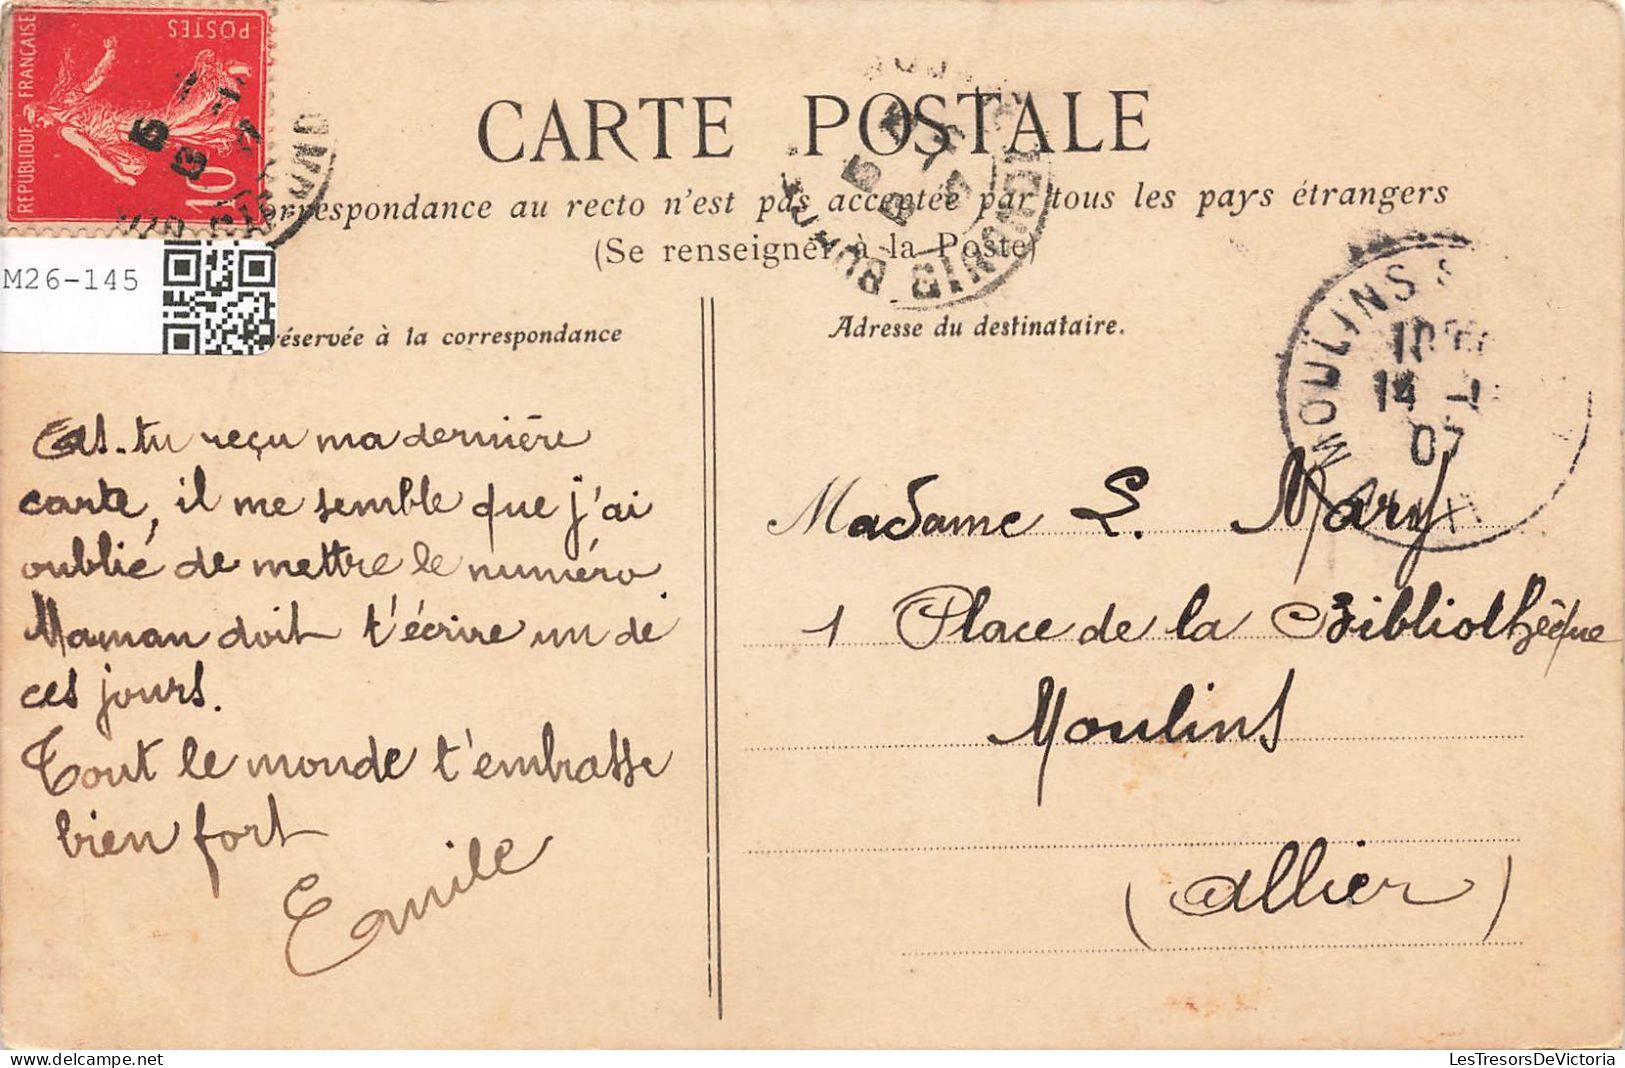 REPUBLIQUE FRANÇAISE
POSTES
10
CARTE POSTALE
respondance au recto n'est pas acceptée par tous les pays étrangers
(Se renseigner à la Poste)
M26-145
réservée à la correspondance
Adresse du destinataire.
MOULINS S
10
14 - 1
07
As-tu reçu ma dernière
carte, il me semble que j'ai
oublié de mettre le numéro
Maman doit t'écrire un de
ces jours.
Tout le monde t'embrasse
bien fort
Emile
Madame L. Mary
1 Place de la Bibliothèque
Moulins
(Allier)
LesTresorsDeVictoria